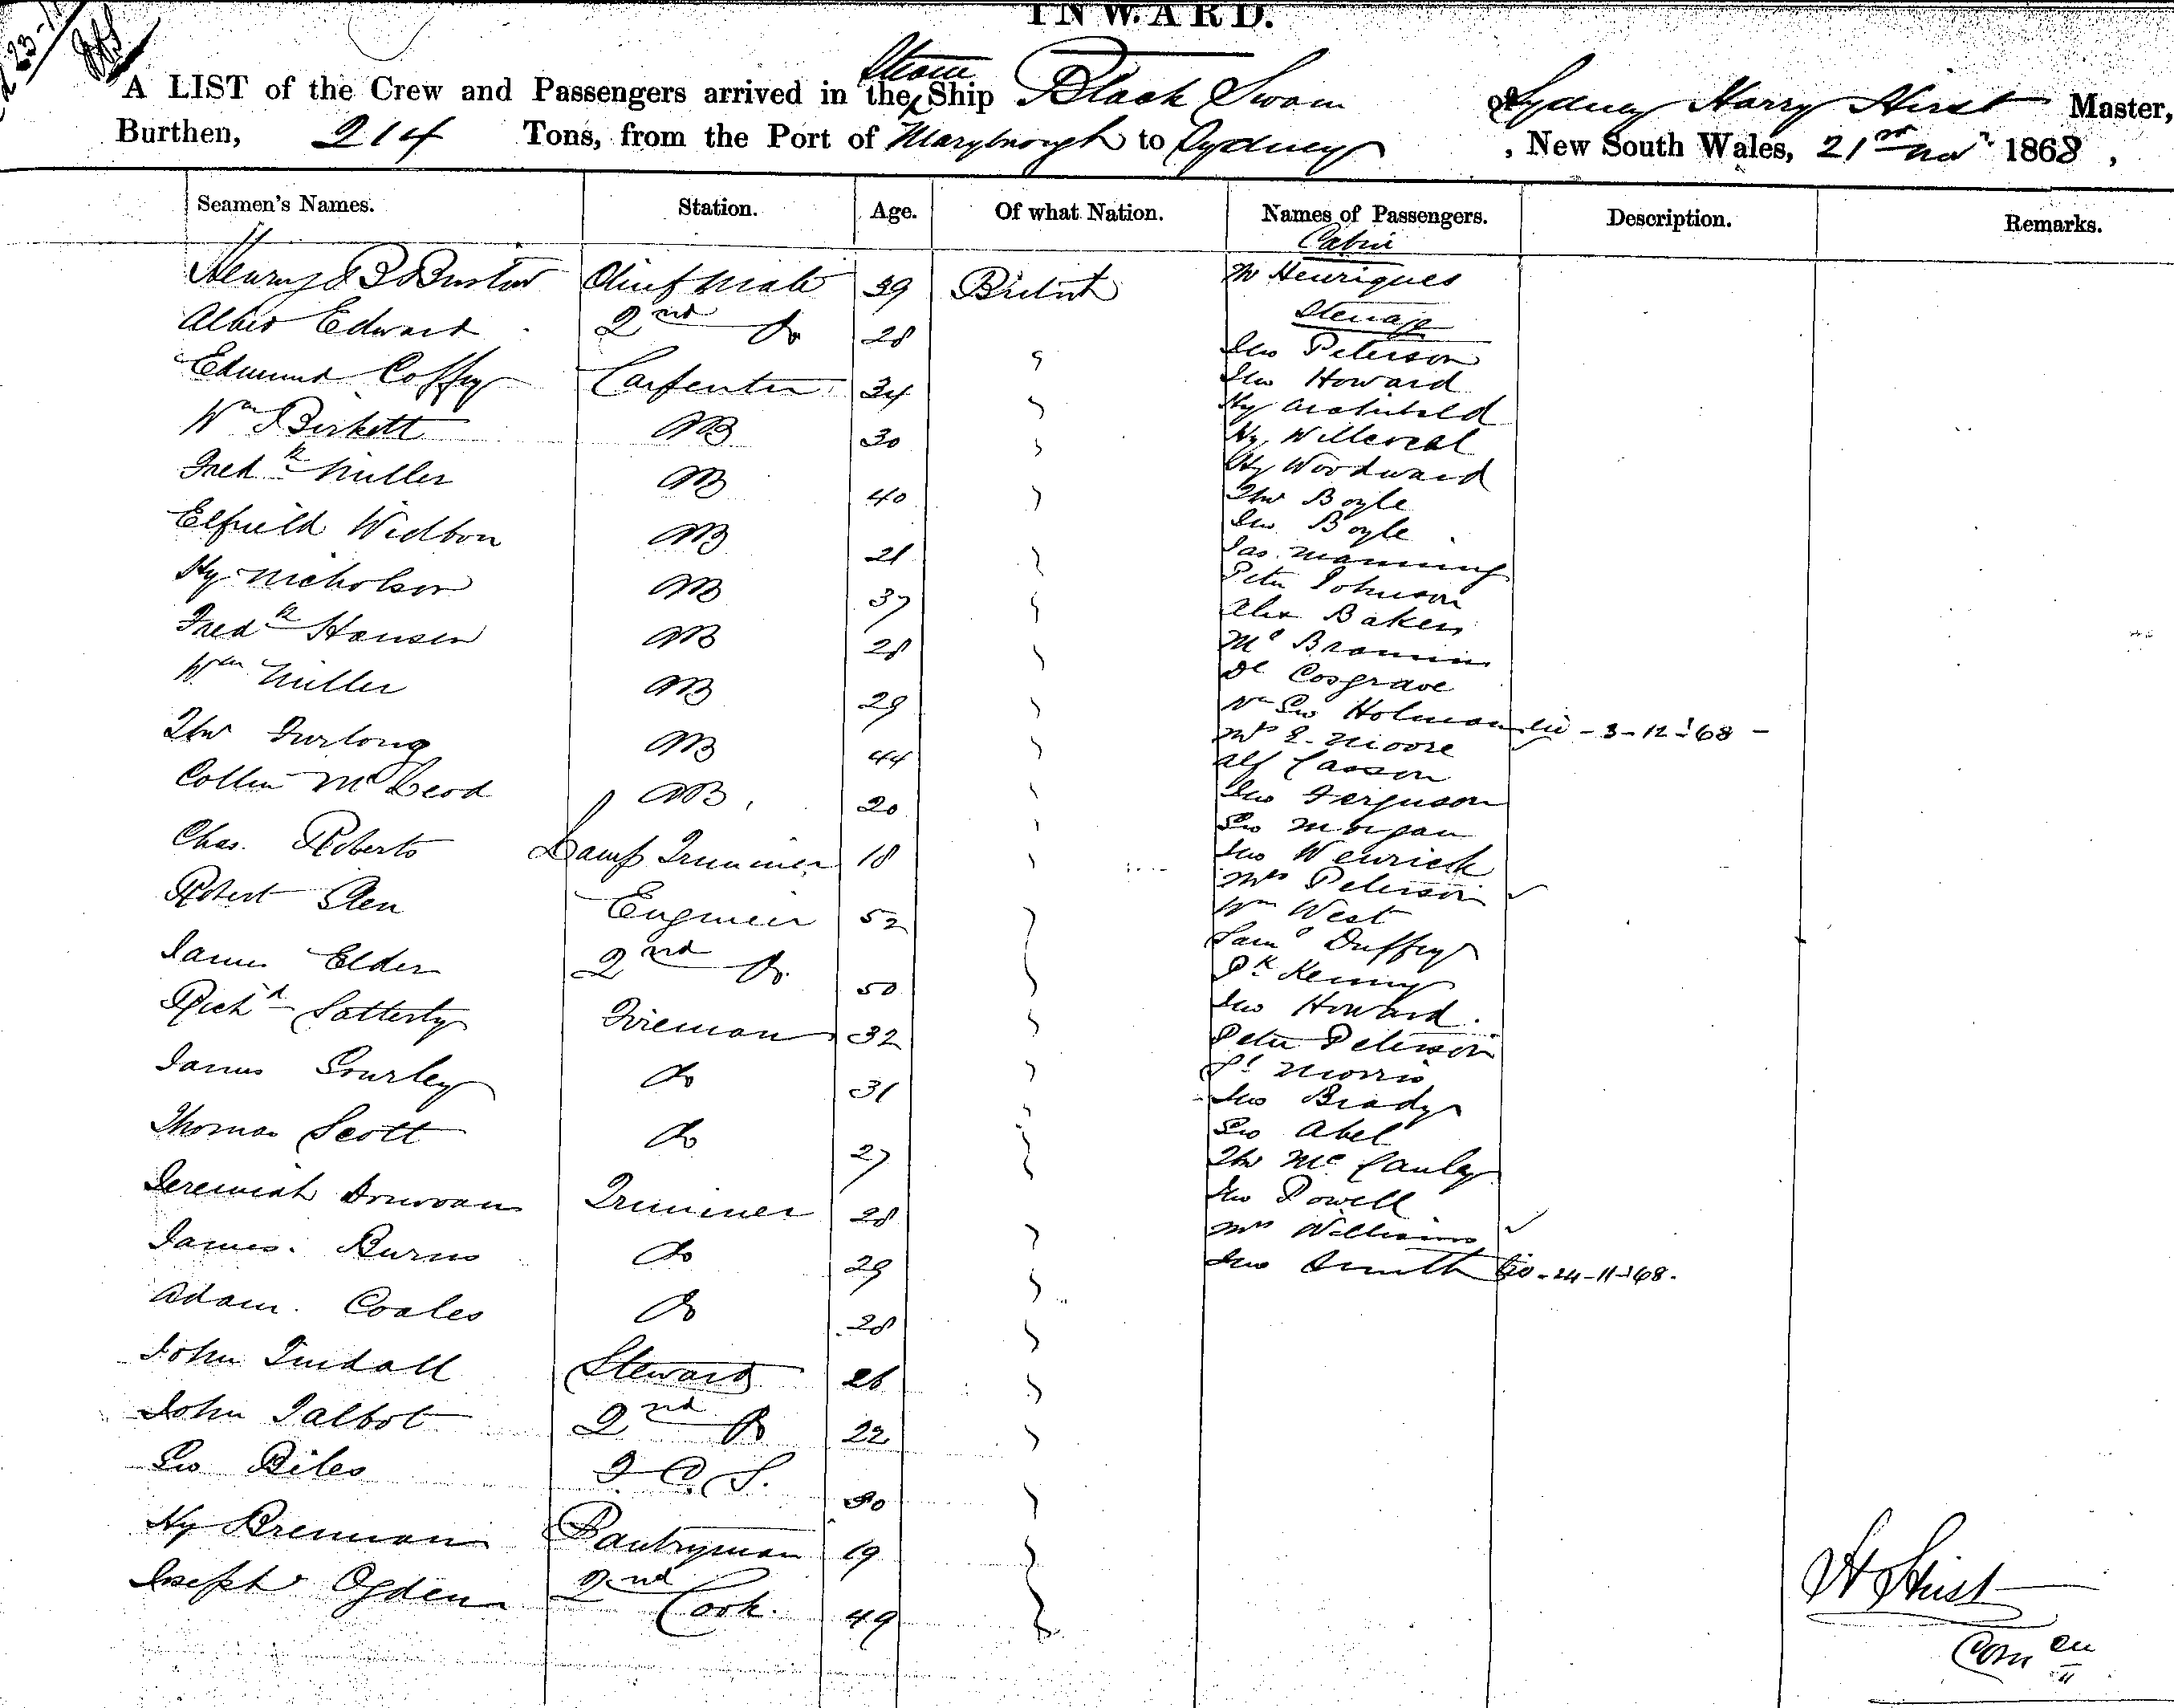 INWARD.
A LIST of the Crew and Passengers arrived in the Steam Ship Black Swan of Sydney Harry Hirst Master,
Burthen, 214 Tons, from the Port of Maryborough to Sydney, New South Wales, 21st Nov 1868,
Seamen's Names. Station. Age. Of what Nation. Names of Passengers. Description. Remarks.
Cabin
Henry B Bristow Chief Mate 39 British Mr Henriques
Steerage
Edward 2nd Do 28
Jno Peterson
Edmund Coffey Carpenter 34
Jno Howard
Hy Archibald
Wm Birkett AB 30
Hy
Fredk Miller AB 40
Hy Woodward
Thos Boyle
Widbon AB 21
Jno Boyle
Jas Manning
Hy Nicholson AB 37
Peter Johnson
Alex Baker
Fredk Hansen AB 28
Cosgrave
Wm Miller AB 29
Geo Holman - 3-12-'68 -
Mrs E. Moore
Thos Furlong AB 44
Alf Casson
Collin McLeod AB, 20
Jno Ferguson
Geo Morgan
Chas. Roberts Lamp Trimmer 18
Jno Wenrick
Mrs Peterson
Robert Glen Engineer 52
Wm West
Saml Duffey
James Elder 2nd Do. 50
Pk Kenny
Richd Satterly Fireman 32
Jno Howard.
Peter Peterson
James Gourley Do 31
Morris
Jno Brady
Thomas Scott Do 27
Geo Abel
Thos McCauley
Jeremiah Donovan Trimmer 28
Jno Powell
Mrs Williams
James Burns Do 29
Jno Smith - 24-11-'68.
Adam Coales Do 28
John Tindall Steward 26
John Talbot 2nd Do 22
Geo Biles F. C. S. 30
Hy Brennan Pantryman 19
Joseph Ogden 2nd Cook. 49
H Hirst
Com